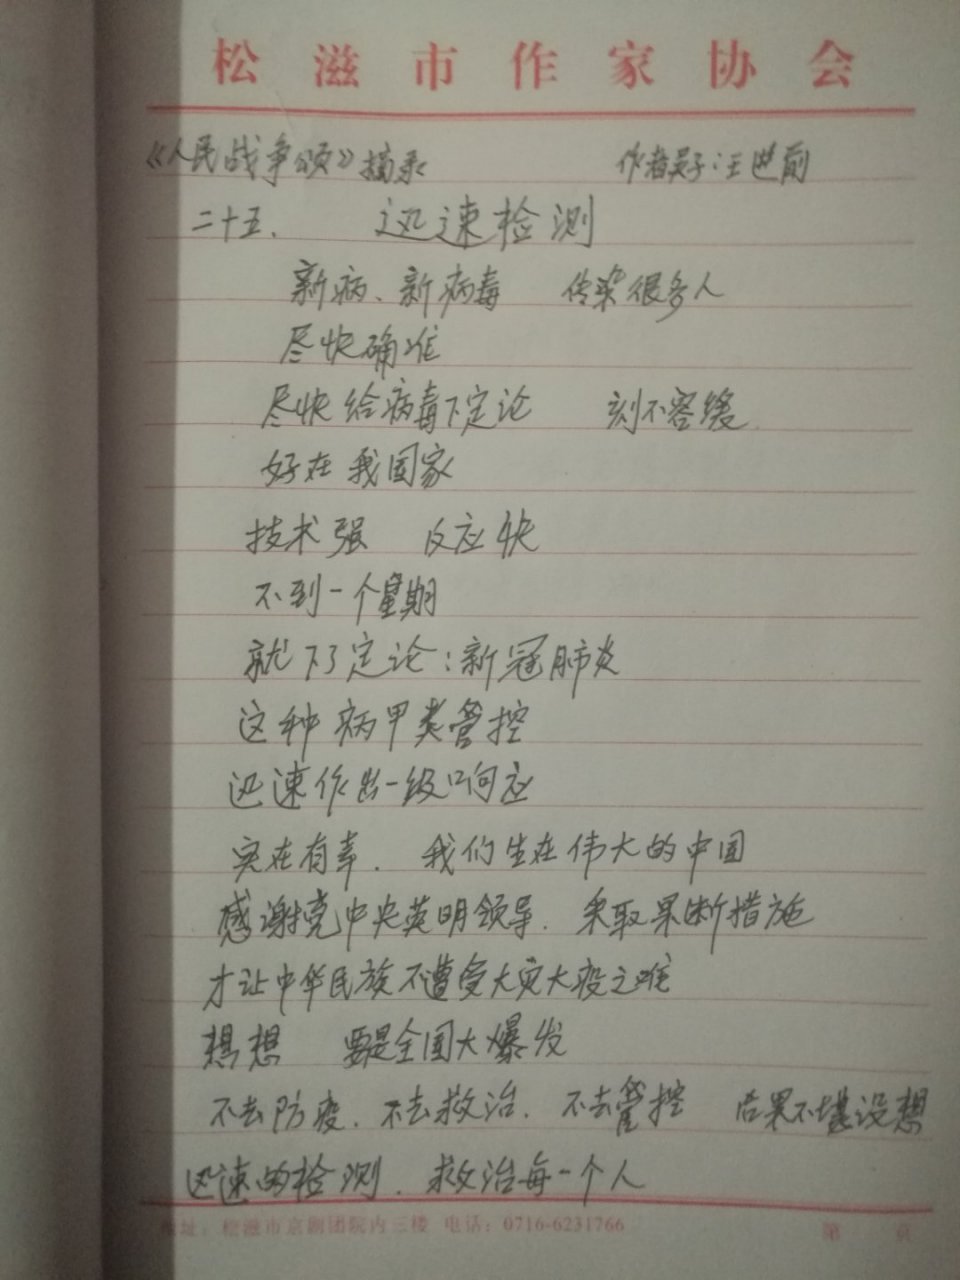 松滋市作家协会
《人民战争颂》摘录 作者吴子:王世前
二十五、 迅速检测
新病、新病毒 传染很多人
尽快确准
尽快给病毒下定论 刻不容缓
好在我国家
技术强 反应快
不到一个星期
就下了定论:新冠肺炎
这种病甲类管控
迅速作出一级响应
实在有幸、我们生在伟大的中国
感谢党中央英明领导、采取果断措施
才让中华民族不遭受大灾大疫之难
想想 要是全国大爆发
不去防疫、不去救治、不去管控 后果不堪设想
迅速的检测、救治每一个人
地址:松滋市京剧团院内三楼 电话:0716-6231766 第 页